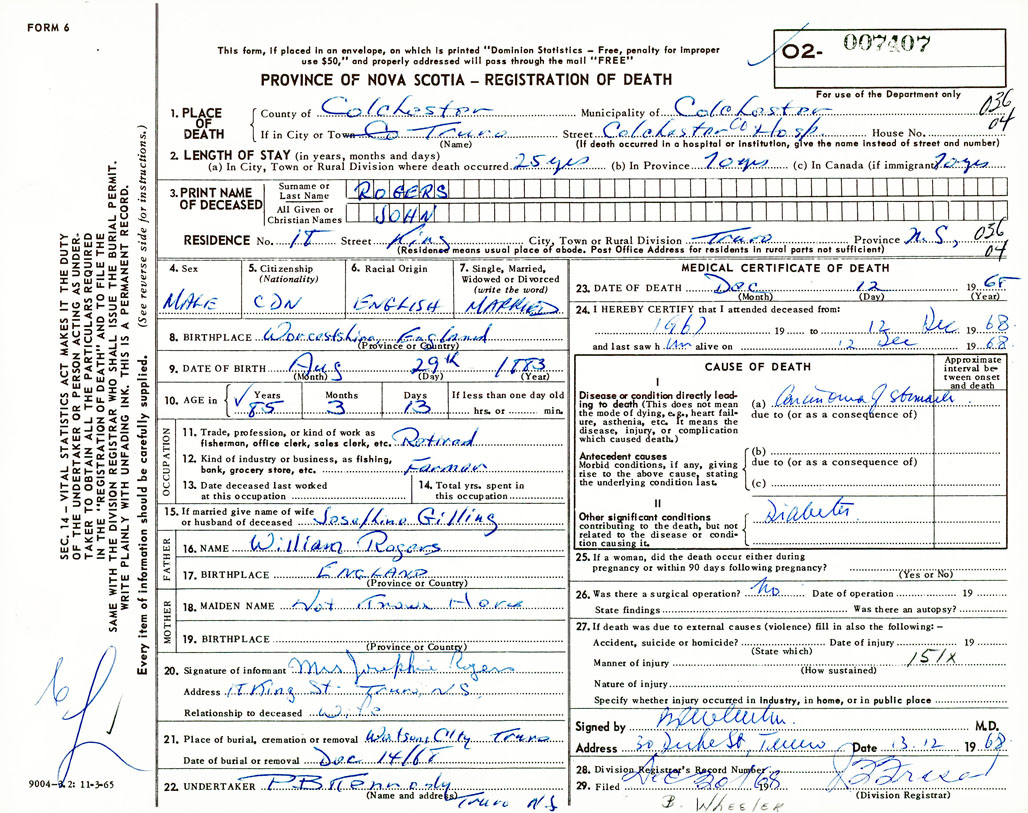 FORM 6
This form, if placed in an envelope, on which is printed "Dominion Statistics – Free, penalty for improper
use $50," and properly addressed will pass through the mail "FREE"
PROVINCE OF NOVA SCOTIA – REGISTRATION OF DEATH
O2- 007407
For use of the Department only
036
04
1. PLACE OF DEATH
County of Colchester Municipality of Colchester
If in City or Town Truro Street Colchester Co Hosp House No.
(Name) (If death occurred in a hospital or institution, give the name instead of street and number)
2. LENGTH OF STAY (in years, months and days)
(a) In City, Town or Rural Division where death occurred 25 yrs (b) In Province 70 yrs (c) In Canada (if immigrant) 70 yrs
3. PRINT NAME OF DECEASED
Surname or Last Name ROGERS
All Given or Christian Names JOHN
RESIDENCE No. Street King City, Town or Rural Division Truro Province N.S,
036
04
(Residence means usual place of abode. Post Office Address for residents in rural parts not sufficient)
4. Sex
MALE
5. Citizenship
(Nationality)
CDN
6. Racial Origin
ENGLISH
7. Single, Married,
Widowed or Divorced
(write the word)
MARRIED
8. BIRTHPLACE England
(Province or Country)
9. DATE OF BIRTH Aug 29th 1883
(Month) (Day) (Year)
10. AGE in Years Months Days If less than one day old
85 3 13 hrs. or min.
OCCUPATION
11. Trade, profession, or kind of work as
fisherman, office clerk, sales clerk, etc. Retired
12. Kind of industry or business, as fishing,
bank, grocery store, etc. Farmer
13. Date deceased last worked
at this occupation
14. Total yrs. spent in
this occupation
15. If married give name of wife
or husband of deceased Josephine Gilling
FATHER
16. NAME William Rogers
17. BIRTHPLACE ENGLAND
(Province or Country)
MOTHER
18. MAIDEN NAME Not Known Here
19. BIRTHPLACE
(Province or Country)
20. Signature of informant Mrs Josephine Rogers
Address King St. Truro, N.S.
Relationship to deceased Wife
21. Place of burial, cremation or removal Truro
Date of burial or removal Dec 14/68
22. UNDERTAKER
(Name and address) Truro N.S
MEDICAL CERTIFICATE OF DEATH
23. DATE OF DEATH Dec 12 1968
(Month) (Day) (Year)
24. I HEREBY CERTIFY that I attended deceased from:
1967 19 to 12 Dec 1968
and last saw him alive on 12 Dec 1968
CAUSE OF DEATH
Approximate
interval be-
tween onset
and death
I
Disease or condition directly lead-
ing to death (This does not mean
the mode of dying, e.g., heart fail-
ure, asthenia, etc. It means the
disease, injury, or complication
which caused death.)
(a) Carcinoma of Stomach
due to (or as a consequence of)
Antecedent causes
Morbid conditions, if any, giving
rise to the above cause, stating
the underlying condition last.
(b)
due to (or as a consequence of)
(c)
II
Other significant conditions
contributing to the death, but not
related to the disease or condi-
tion causing it.
Diabetes
25. If a woman, did the death occur either during
pregnancy or within 90 days following pregnancy?
(Yes or No)
26. Was there a surgical operation? No Date of operation 19
State findings Was there an autopsy?
27. If death was due to external causes (violence) fill in also the following: –
Accident, suicide or homicide? Date of injury 19
(State which)
Manner of injury 151X
(How sustained)
Nature of injury
Specify whether injury occurred in industry, in home, or in public place
Signed by M.D.
Address 30 Duke St, Truro Date 13.12 1968
28. Division Registrar's Record Number
29. Filed Dec 20 1968
(Division Registrar)
B. WHEELER
SEC. 14 – VITAL STATISTICS ACT MAKES IT THE DUTY
OF THE UNDERTAKER OR PERSON ACTING AS UNDER-
TAKER TO OBTAIN ALL THE PARTICULARS REQUIRED
IN THE "REGISTRATION OF DEATH" AND TO FILE THE
SAME WITH THE DIVISION REGISTRAR WHO SHALL ISSUE THE BURIAL PERMIT.
WRITE PLAINLY WITH UNFADING INK. THIS IS A PERMANENT RECORD.
Every item of information should be carefully supplied. (See reverse side for instructions.)
11-3-65